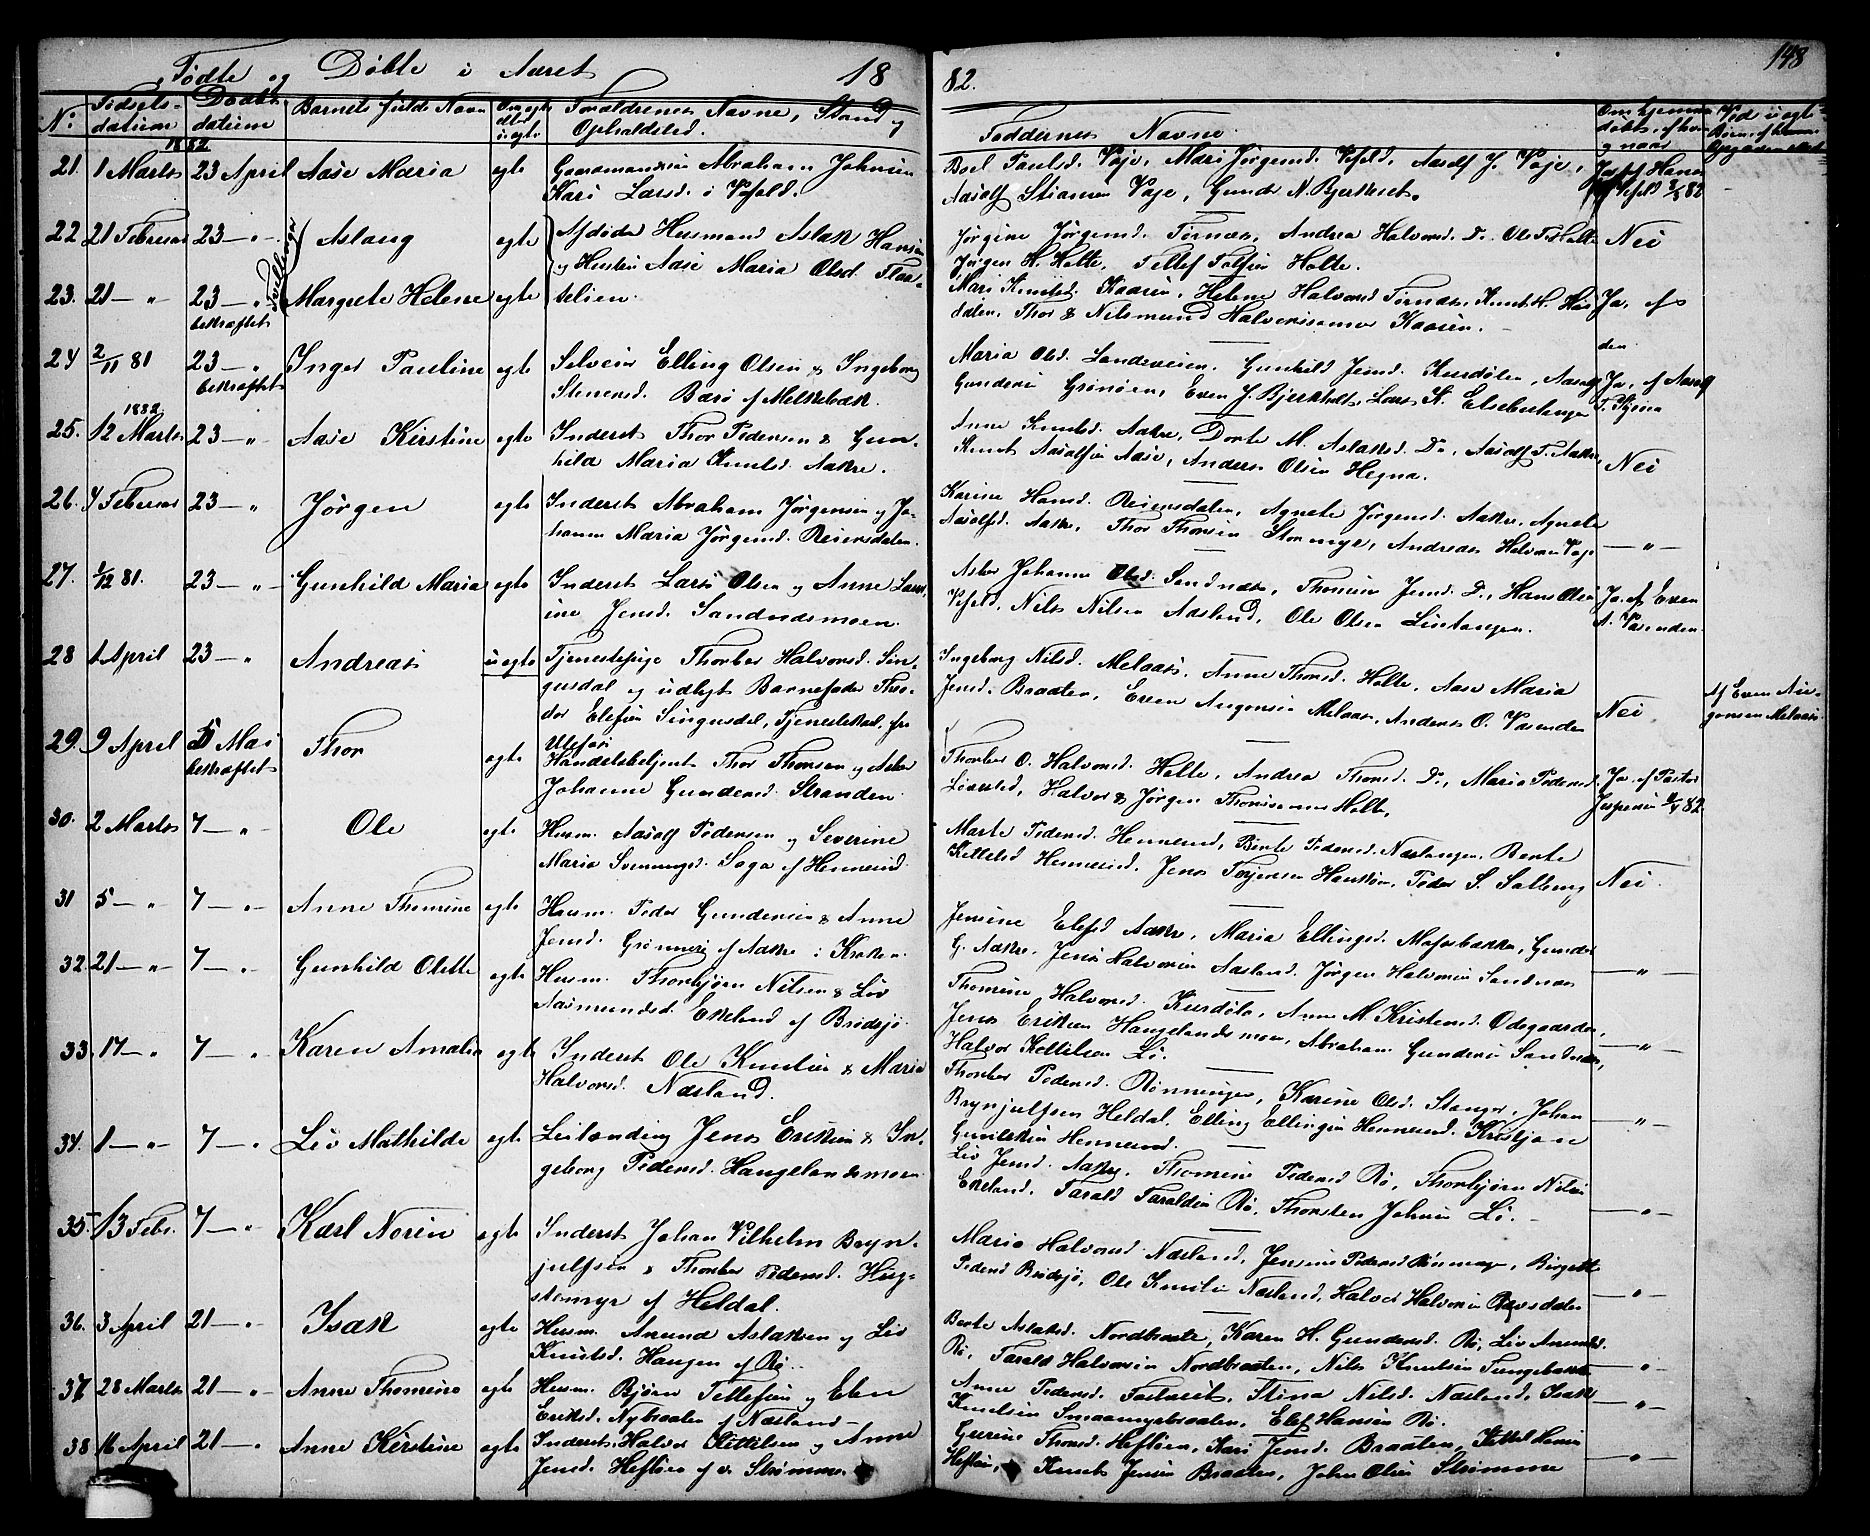 Fødte og Døbte i Aaret 18
82.
148
No
Fødsels-
datum
Daabs-
datum
Barnets fulde Navn
Om egte
eller
uegte
Forældrenes Navne, Stand og
Opholdsted.
Faddernes Navne.
Om hjemme-
døbt, af hvem
og naar
1882
21. 1 Marts 23 April Aase Maria egte Gaardmand Abraham Johnsen
Kari Larsd. i Vefald.
Boel Paulsd. Vaje, Mari Jørgensd. Vefald, Aasolf J. Vaje,
Aasolf Stiansen Vaje, Gunder N. Bjerkeset.
Ja, af Hans
Vefald 82
22. 21 Februar 23 — " Aslaug egte Afdøde Husmand Aslak Hansen
og Hustru Aase Maria Olsd. Thor-
Jørgine Jørgensd. Tornæs, Andrea Halvorsd. D., Ole T. Holte
Jørgen H. Holte, Tellef Tolfsen Holte.
Nei
Tvillinger
23. 21 — " 23 — " Margrete Helene egte
bekræftet
Mari Knutsd. Kaasen, Helene Halvorsd Tornæs, Knut H. Has-
dalen, Thor & Nilsmund Halvorssønner Kaasen.
Ja, af
den
24 2/11 81 23 — " Inger Pauline egte Selveier Elling Olsen & Ingeborg
bekræftet
Stenersd. Barø af Melkebæk.
Maria Olsd. Landsverk, Gunhild Jensd. Kurdølen, Aasolf
Gundersen Grinøen, Even J. Bjerkholt, Lars St.
Ja, af Aasolf
1882
25. 12 Marts 23 — " Aase Kirstine egte Inderst Thor Pedersen & Gun-
hild Maria Knutsd. Aakre.
Anne Knutsd. Aakre, Dorte M. Aslaksd. D., Aasolf T. Aakre,
Knut Aasolfsen Aase, Anders Olsen Hegna.
Nei
26. 4 Februar 23 — " Jørgen egte Inderst Abraham Jørgensen og Jo-
hanne Maria Jørgensd. Reiersdalen.
Karine Hansd. Reiersdalen, Agnete Jørgensd. Aakre, Agnete
Aasolfsd. Aakre, Thor Thorsen Stormyr, Andreas Halvorsen Vaje
— " —
27. 1/12 81. 23 — " Gunhild Maria egte Inderst Lars Olsen og Anne Laur-
ine Jensd. Sandnæsmoen.
Aster Johanne Olsd. Sandnæs, Thomine Jensd. D., Hans Olsen
Vefald, Nils Nilsen Aasland, Ole Olsen Listangen.
Ja, af Even
A. Vasenden
28 1 April 23 — " Andreas uegte Tjenestepige Thorber Halvorsd. Sin-
gusdal og udlagt Barnefader Theo-
dor Elefsen Singusdal, Tjenestekarl, fra
Ulefos
Ingeborg Nilsd. Melaas, Anne Thorsd. Holte, Aase Maria
Jensd. Braaten, Even Augonsen Melaas, Anders O. Vasenden
Nei
Af Even Au-
gonsen Melaas.
29. 9 April 5 Mai Thor egte Handelsbetjent Thor Thorsen og Aster
bekræftet
Johanne Gundersd. Stranden.
Thorber O. Halvorsd. Holte, Andrea Thorsd. D., Maria Pedersd
Halvor & Jørgen Thorssønner Holte.
Ja, af Pastor
Jespersen 82
30. 2 Marts 7 — " Ole egte Husm. Aasolf Pedersen og Severine
Maria Svenningsd. Saga af Henseid.
Marte Pedersd. Henseid, Berte Pedersd. Næstangen, Berte
Kettelsd Henseid, Jens Torjersen Haukøn, Peder S. Solberg
Nei
31 5 — " 7 — " Anne Thomine egte Husm. Peder Gundersen & Anne
Jensd. Grønnerø af Aakre i Kroken.
Jensine Elefsd Aakre, Maria Ellingsd. Moforbakken, Gunder
G. Aakre, Jens Halvorsen Aasland, Jørgen Halvorsen Sandnæs
— " —
32. 21 — " 7 — " Gunhild Olette egte Husm. Thorbjørn Nilsen & Liv
Aasmundsd. Ekeland af Bridsjø.
Thomine Halvorsd. Kurdøla, Anne M. Kristensd. Ødegaarden,
Jens Eriksen Haugelandsmoen, Abraham Gundersen Sandnæs,
Halvor Kettilsen Lø.
— " —
33. 17 — " 7 — " Karen Amalia egte Inderst Ole Knutsen & Maria
Halvorsd. Næsland.
Thorber Pedersd. Rønningen, Karine Olsd. Stanger, Johan
Brynjulfsen Heldal, Elling Ellingsen Henseid, Kristjane
Henseid.
— " —
34. 1 — " 7 — " Liv Mathilde egte Leilænding Jens Eriksen & In-
geborg Pedersd. Haugelandsmoen.
Liv Jensd. Aakre, Thomine Pedersd Rø, Thorbjørn Nilsen
Ekeland, Tarald Taraldsen Rø, Thorsten Johnsen Lø.
— " —
35. 13 Febr. 7 — " Karl Noren egte Inderst Johan Vilhelm Bryn-
julfsen & Thorber Pedersd. Hug-
stomyr af Heldal.
Maria Halvorsd Næsland, Jensine Pedersd Rønningen, Birgitte
Pedersd Bridsjø, Ole Knutsen Næsland, Halvor Halvorsen Ravsdalen
— " —
36. 3 April 21 — " Isak egte Husm. Anund Aslaksen og Liv
Knutsd. Haugen af Rø.
Berte Aslaksd. Nordbraate, Karen H. Gundersd. Rø, Liv Anundsd.
Rø, Tarald Halvorsen Nordbraaten, Nils Knutsen Tungebakke
— " —
37. 28 Marts 21 — " Anne Thomine egte Husm. Bjørn Tellefsen og Elen
Eriksd. Nybraaten af Næsland
Anne Pedersd. Fosteset, Stina Nilsd. Næsland, Isak
Knutsen Smaamyrbraaten, Elef Hansen Rø.
— " —
38 16 April 21 — " Anne Kirstine egte Inderst Halvor Kittilsen og Anne
Jensd. Hefløen af v. Strømme.
Gurine Thorsd. Hefløen, Kari Jensd. Braaten, Kittil Hansen
Hefløen, Knut Jensen Braaten, John Olsen Strømme
— " —